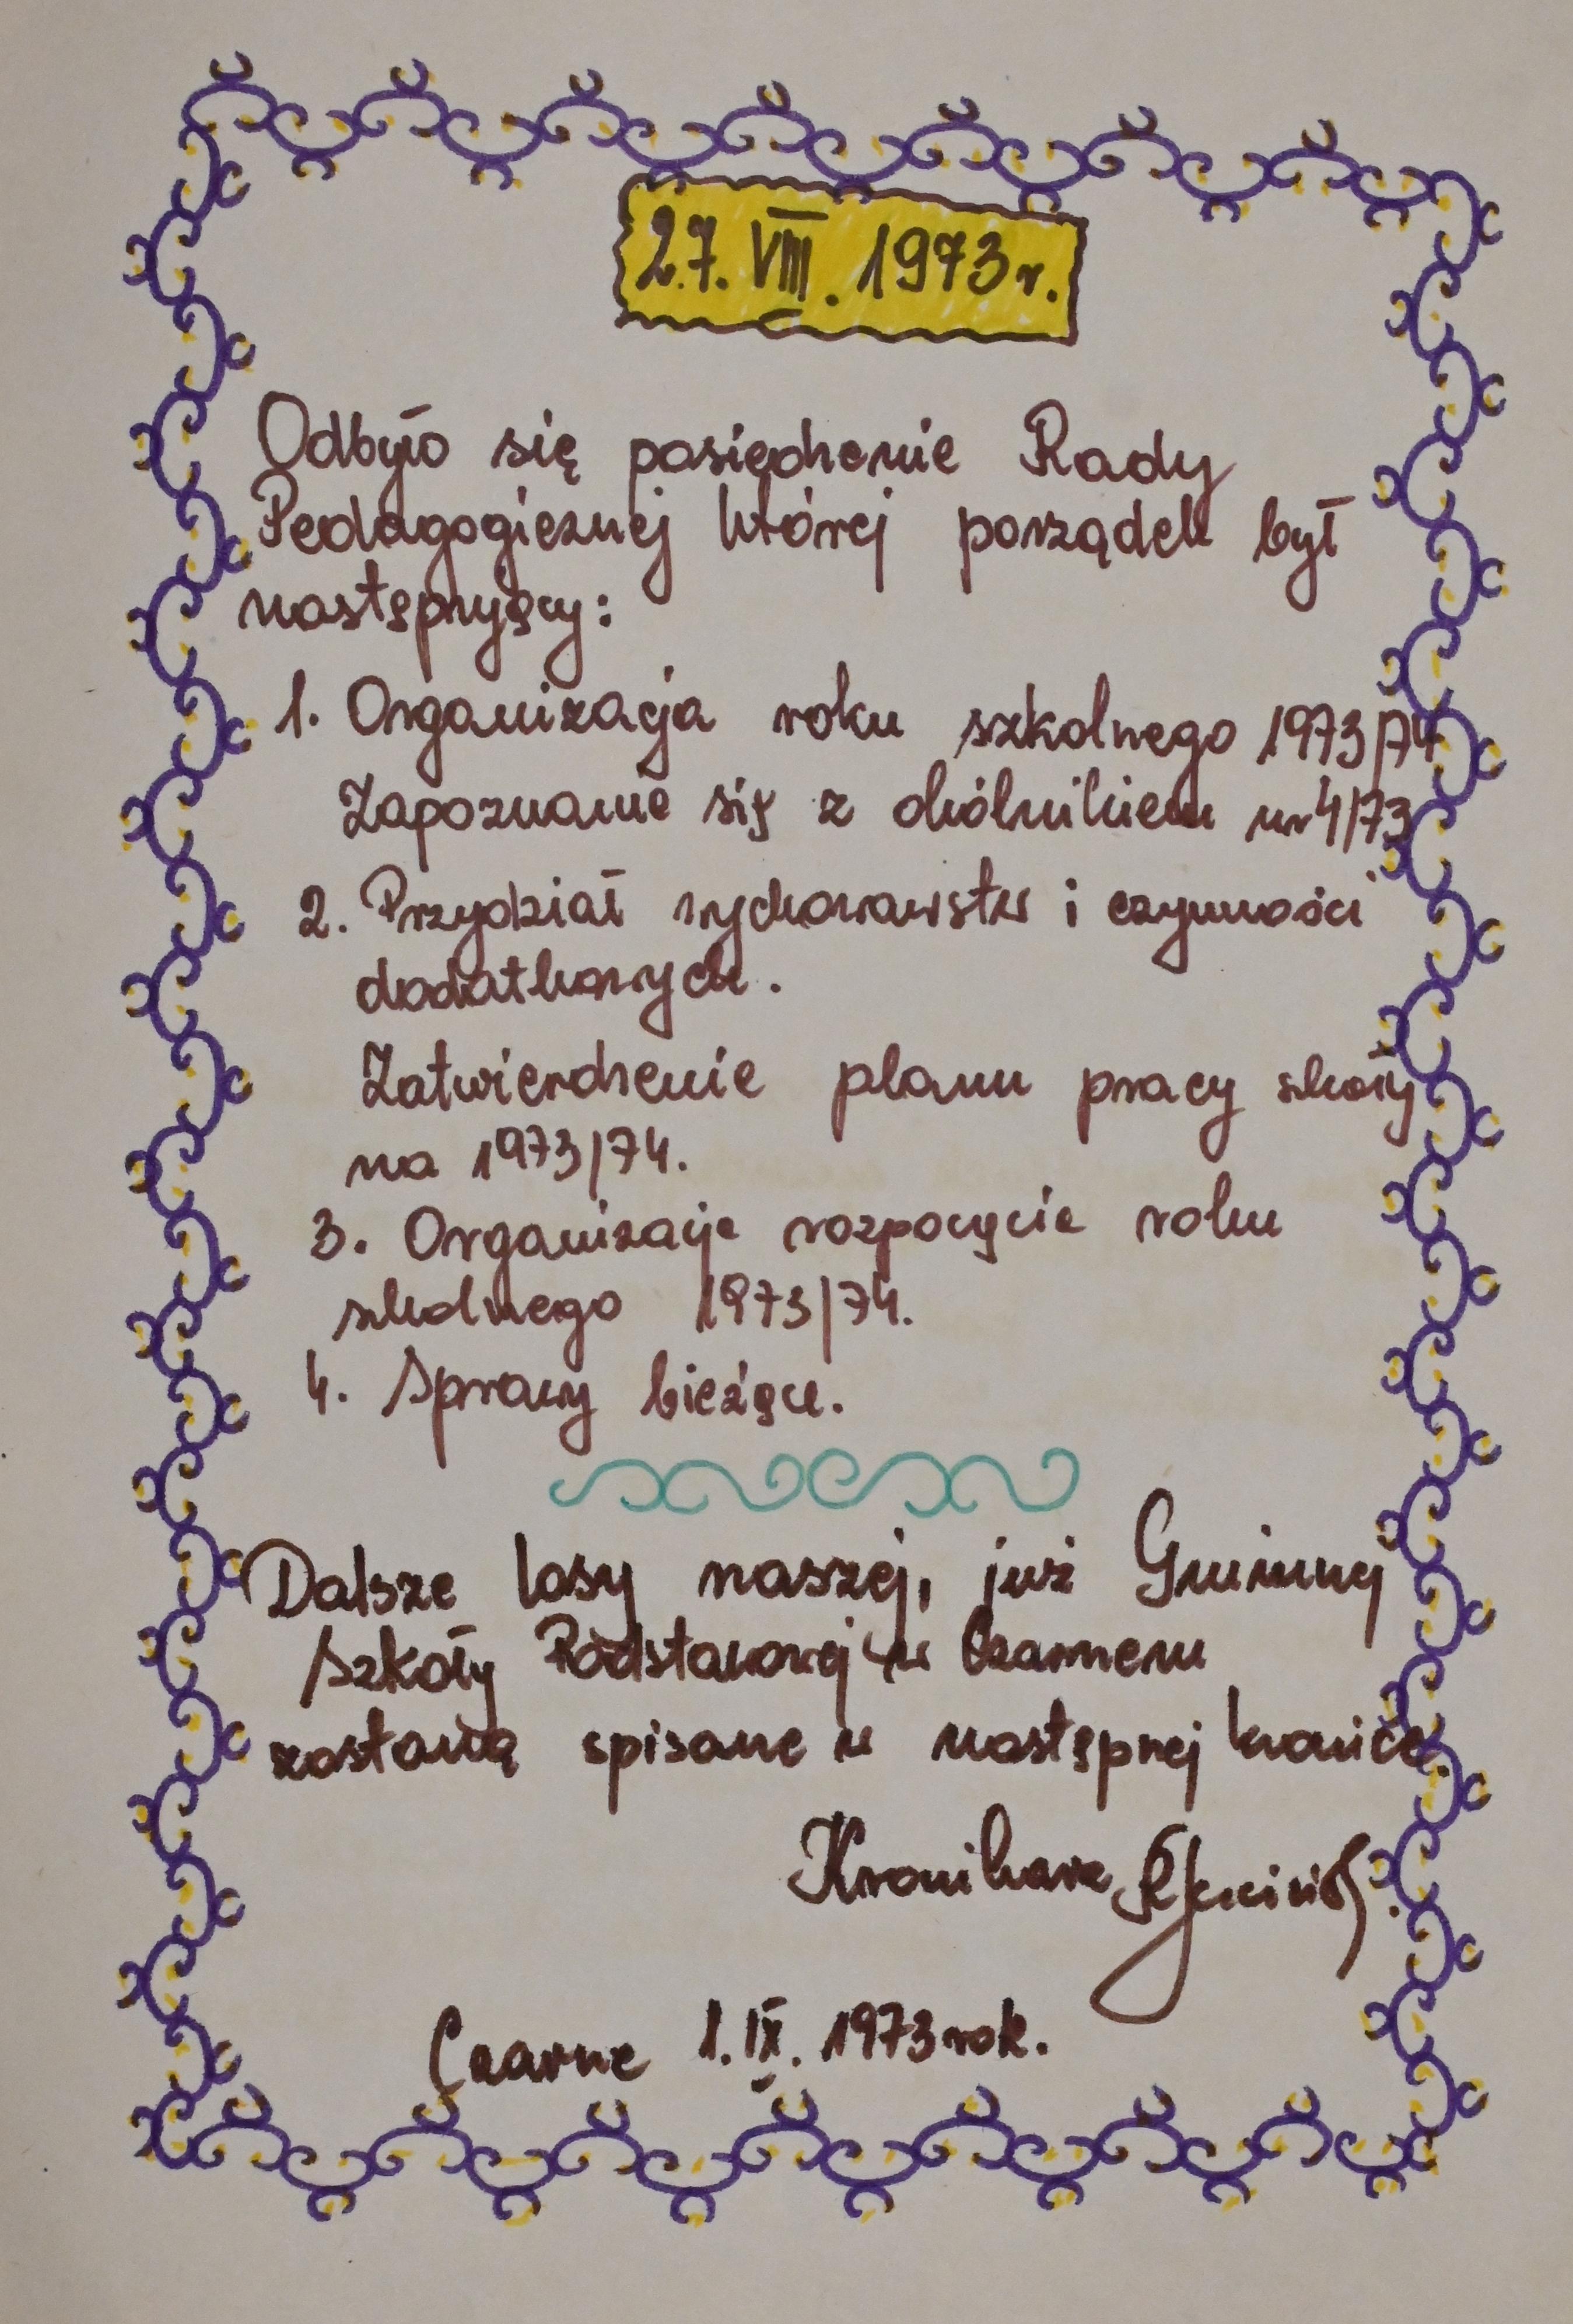 27. VIII. 1973 r.
Odbyło się posiedzenie Rady
Pedagogicznej której porządek był
następujący:
1. Organizacja roku szkolnego 1973/74
Zapoznanie się z okólnikiem nr 4/73
2. Przydział wychowawstw i czynności
dodatkowych.
Zatwierdzenie planu pracy szkoły
na 1973/74.
3. Organizacje rozpoczęcie roku
szkolnego 1973/74.
4. Sprawy bieżące.
Dalsze losy naszej, już Gminnej
Szkoły Podstawowej w Czarnem
zostaną spisane w następnej kronice.
Kronikarz
Czarne 1. IX. 1973 rok.